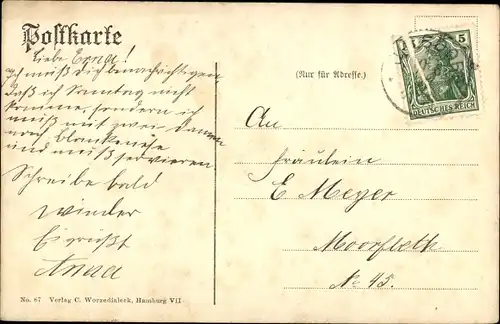 Postkarte
Liebe Erna!
Ich muß dich benachrichtigen,
daß ich Sonntag nicht
komme, sondern ich
muß mit zwei Damen
nach Blankenese
und muß servieren.
Schreibe bald
wieder
Es grüßt
Anna
(Nur für Adresse.)
5
DEUTSCHES REICH
An
Fräulein
E. Meyer
Moorfleth
No 45.
No. 87 Verlag C. Worzedialeck, Hamburg VII